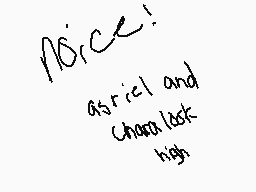 noice!
asriel and
chara look
high